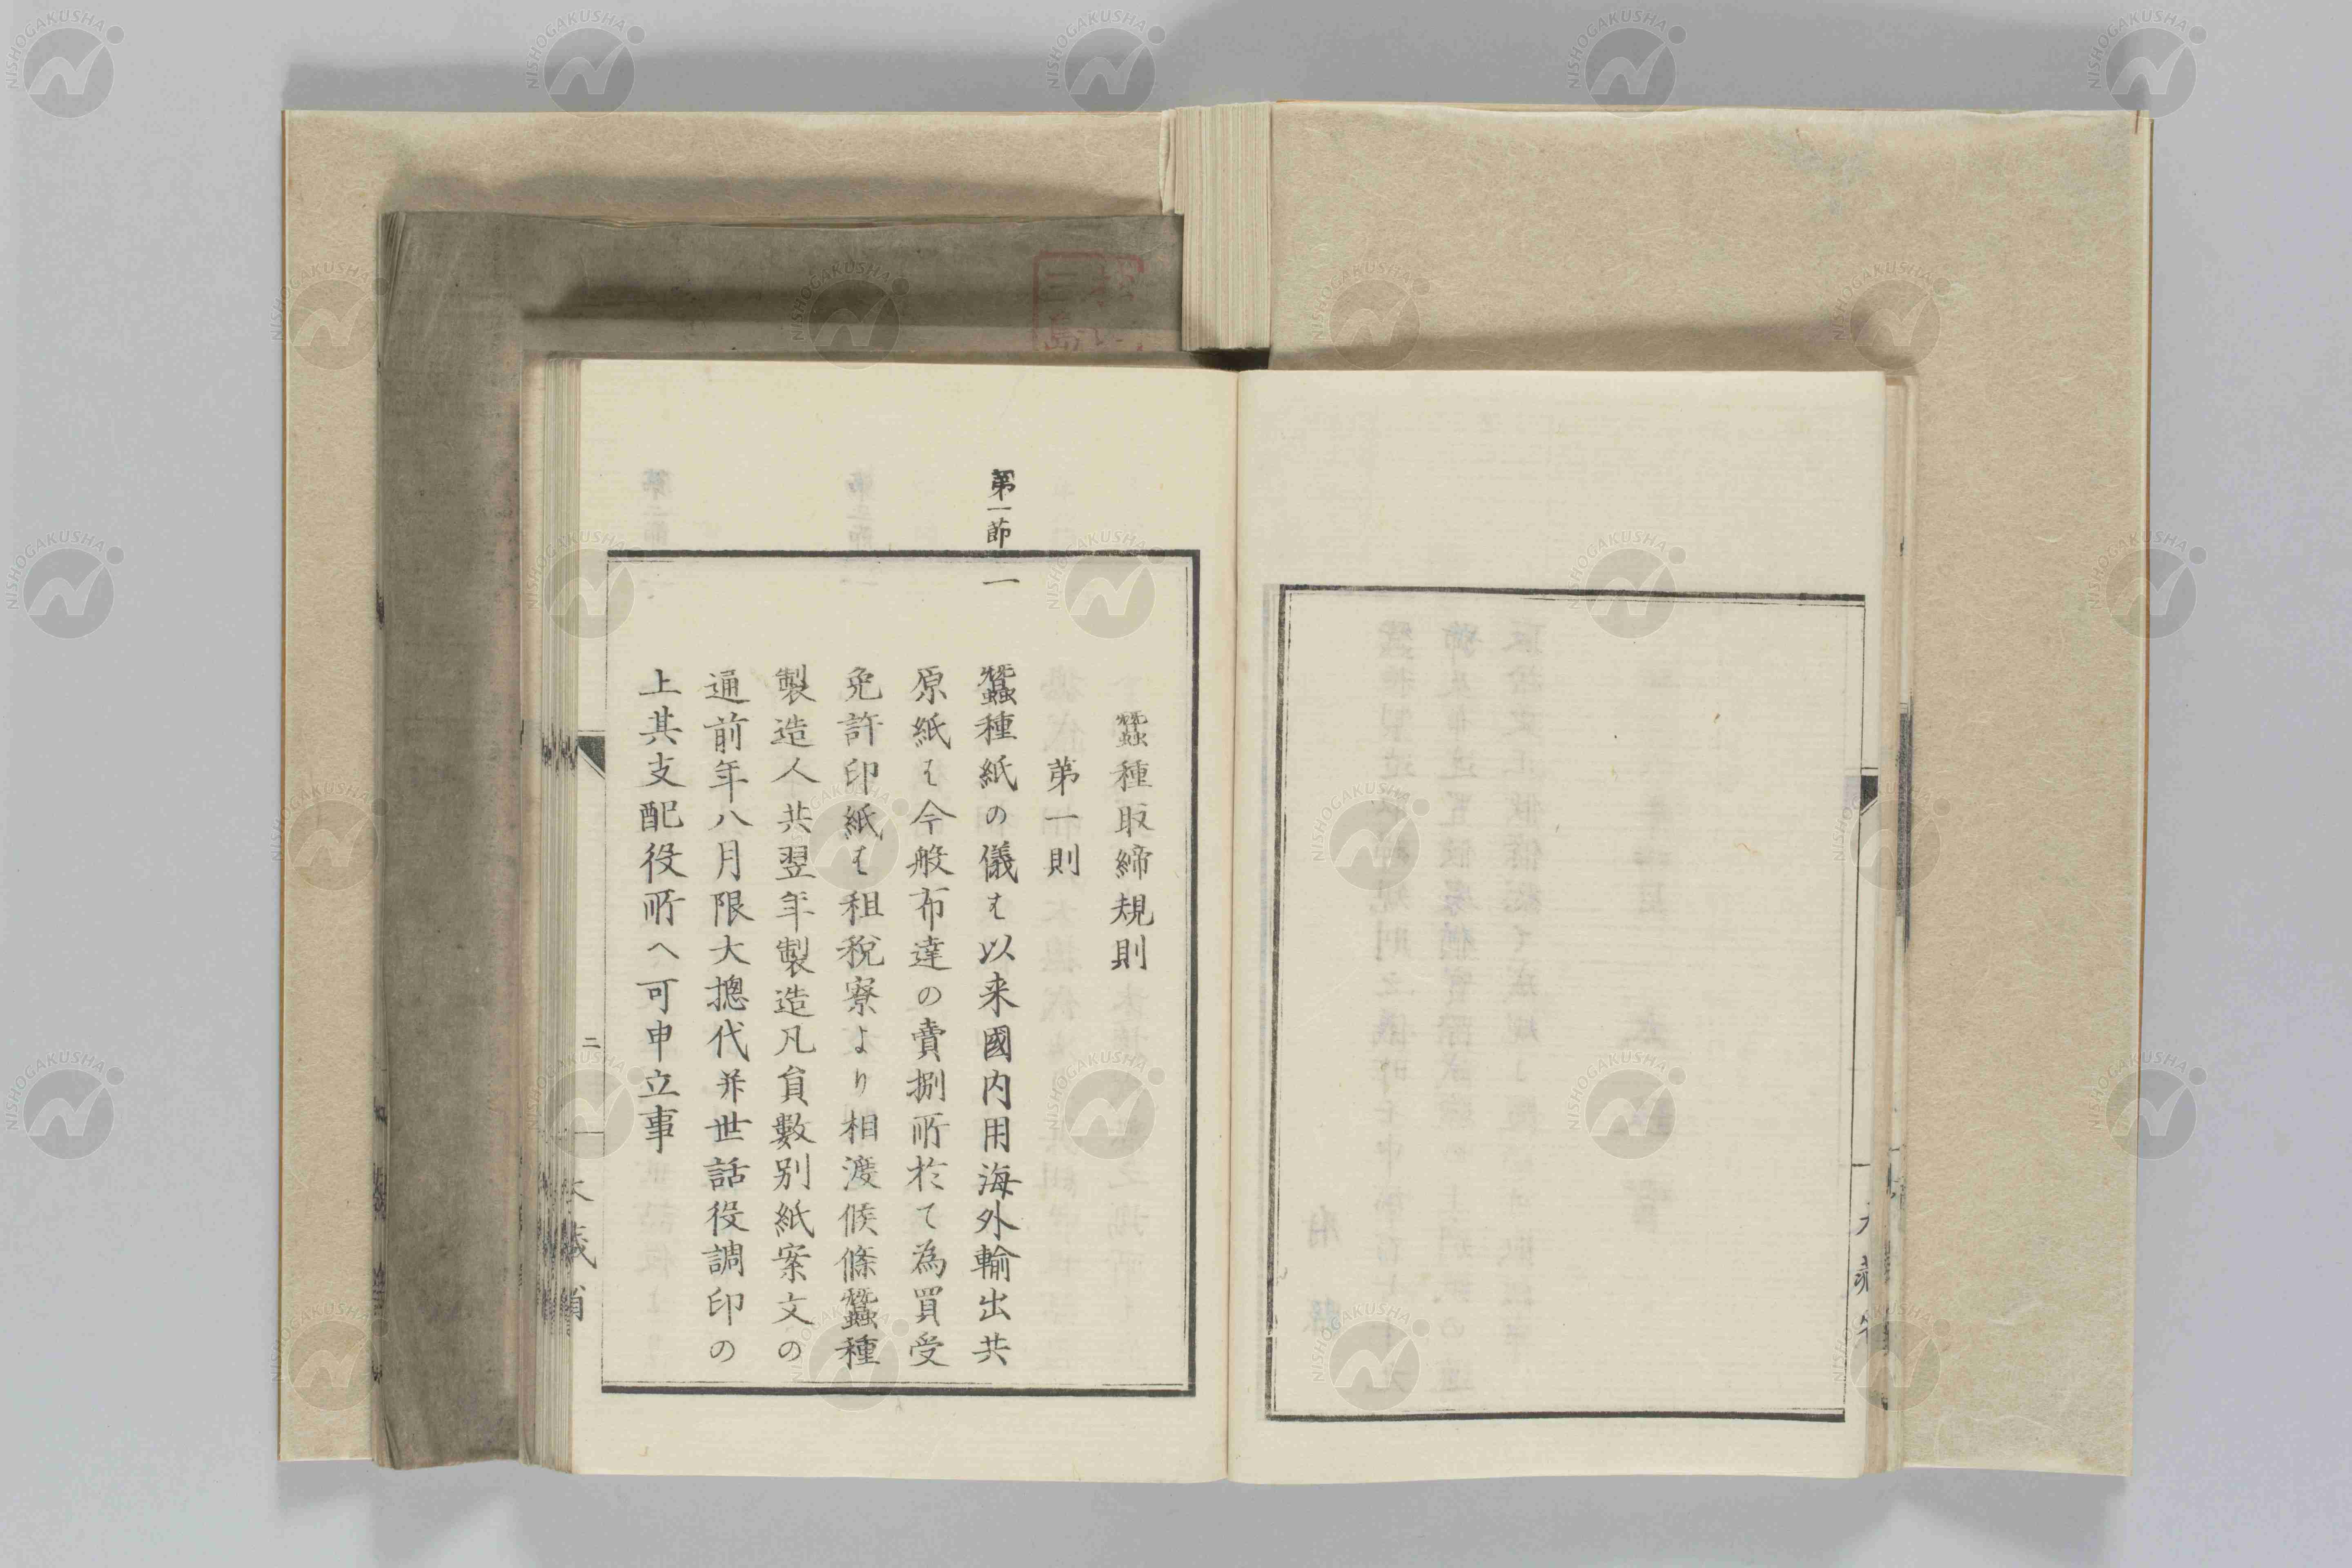 蠶種取締規則
第一則
第一節
一
蠶種紙の儀は以来國内用海外輸出共
原紙は今般布達の賣捌所於て為買受
免許印紙は租税寮より相渡候條蠶種
製造人共翌年製造凡員數別紙案文の
通前年八月限大摠代并世話役調印の
上其支配役所へ可申立事
二
NISHOGAKUSHA